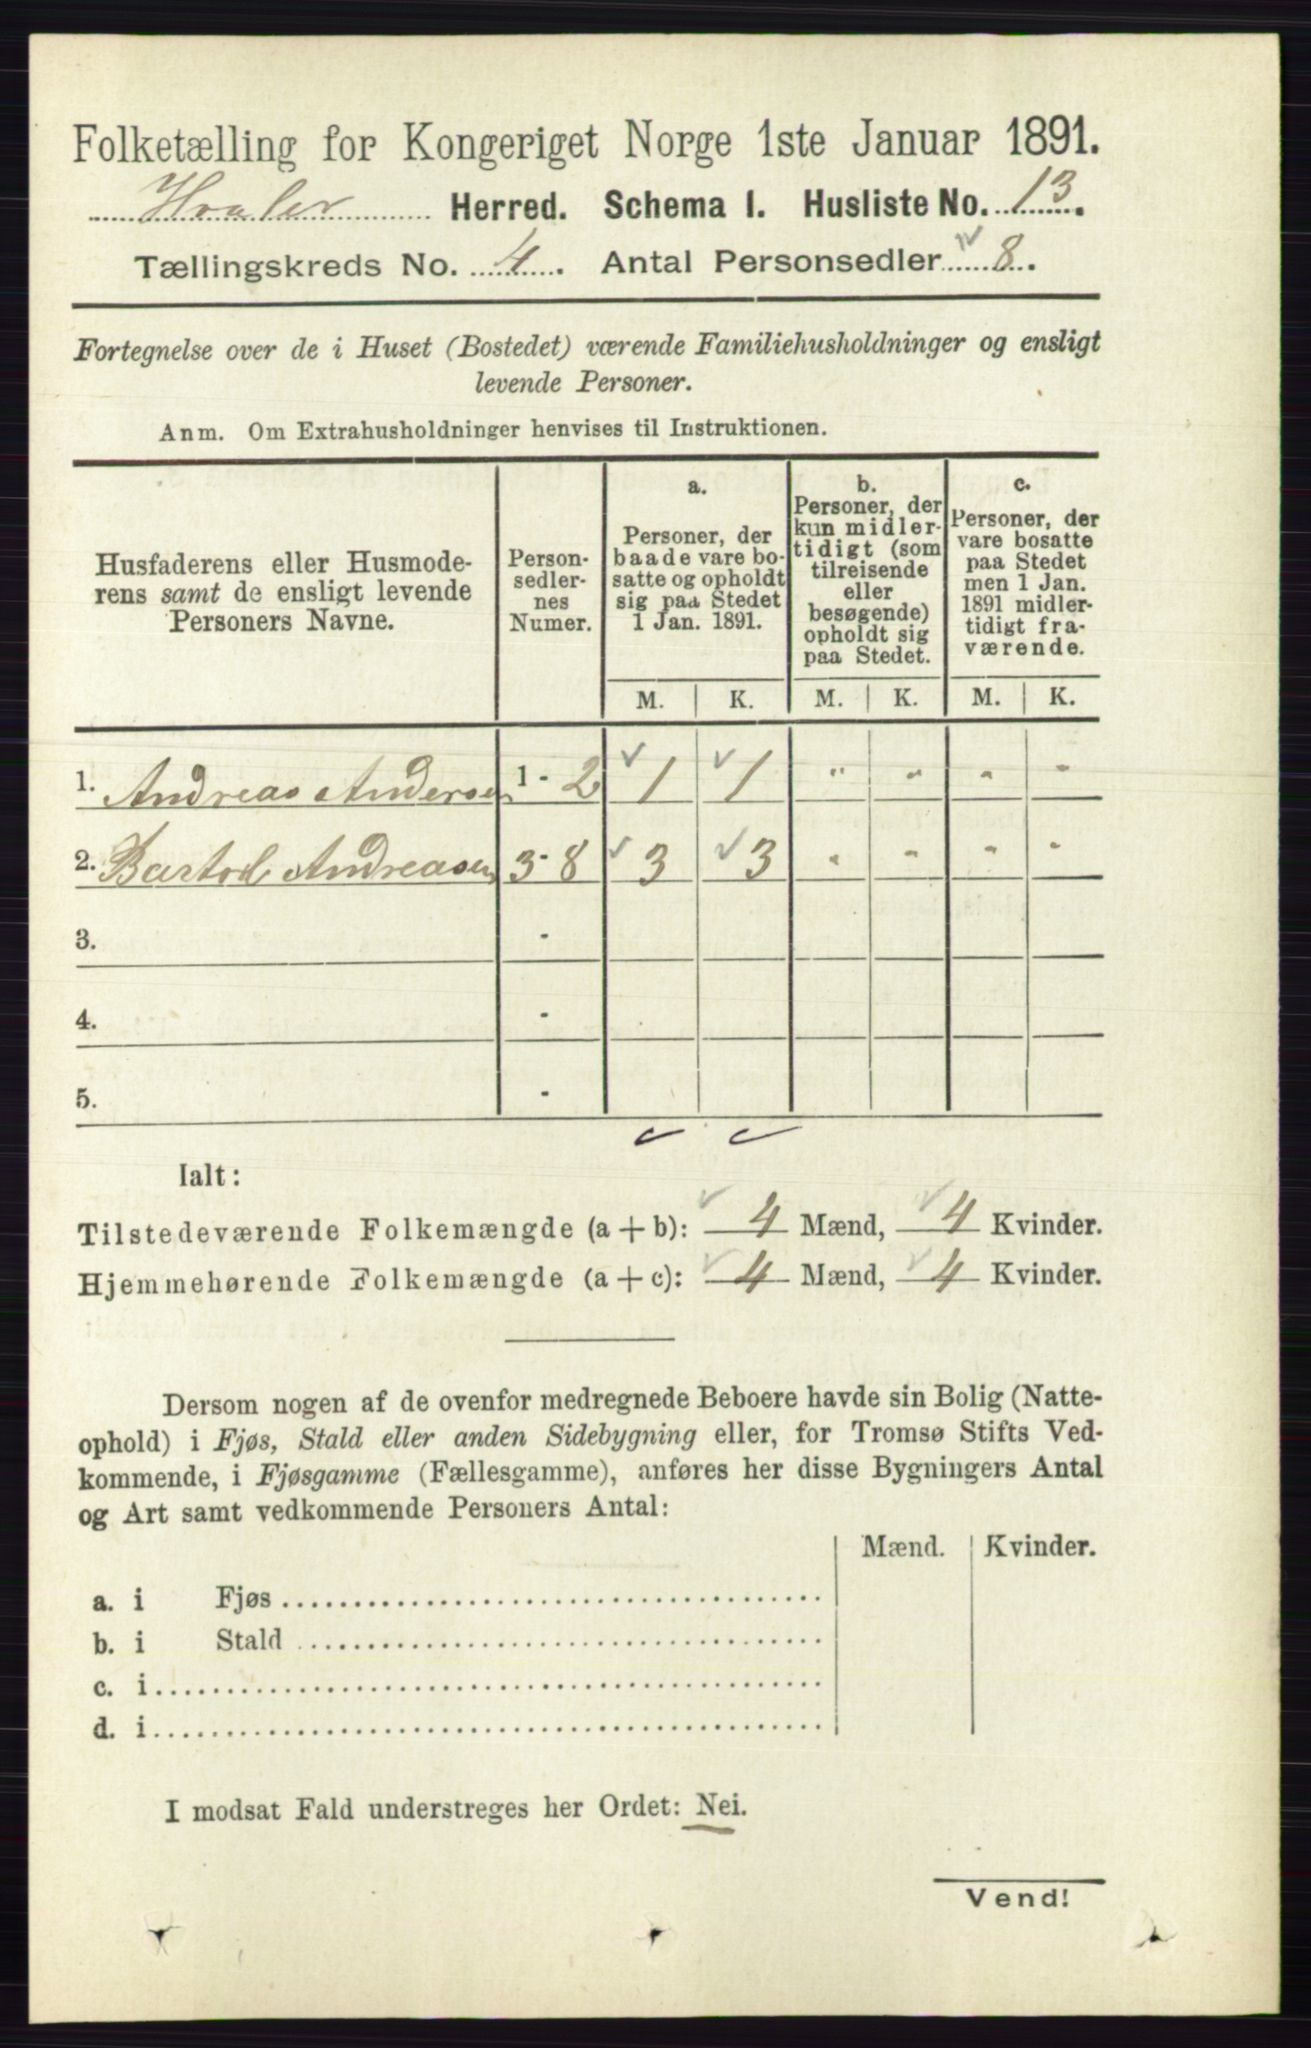 Folketælling for Kongeriget Norge 1ste Januar 1891.
Hvaler Herred. Schema I. Husliste No. 13.
Tællingskreds No. 4. Antal Personsedler 8.
Fortegnelse over de i Huset (Bostedet) værende Familiehusholdninger og ensligt
levende Personer.
Anm. Om Extrahusholdninger henvises til Instruktionen.
Husfaderens eller Husmode-
rens samt de ensligt levende
Personers Navne.
Person-
sedler-
nes
Numer.
a.
Personer, der
baade vare bo-
satte og opholdt
sig paa Stedet
1 Jan. 1891.
b.
Personer, der
kun midler-
tidigt (som
tilreisende
eller
besøgende)
opholdt sig
paa Stedet.
c.
Personer, der
vare bosatte
paa Stedet
men 1 Jan.
1891 midler-
tidigt fra-
værende.
M. K. M. K. M. K.
1. Andreas Andersen 1 - 2 1 1 " " " "
2. Bartol Andreasen 3 - 8 3 3 " " " "
3. -
4. -
5. -
Ialt:
Tilstedeværende Folkemængde (a + b): 4 Mænd, 4 Kvinder.
Hjemmehørende Folkemængde (a + c): 4 Mænd, 4 Kvinder.
Dersom nogen af de ovenfor medregnede Beboere havde sin Bolig (Natte-
ophold) i Fjøs, Stald eller anden Sidebygning eller, for Tromsø Stifts Ved-
kommende, i Fjøsgamme (Fællesgamme), anføres her disse Bygningers Antal
og Art samt vedkommende Personers Antal:
Mænd. Kvinder.
a. i Fjøs
b. i Stald
c. i
d. i
I modsat Fald understreges her Ordet: Nei.
Vend!